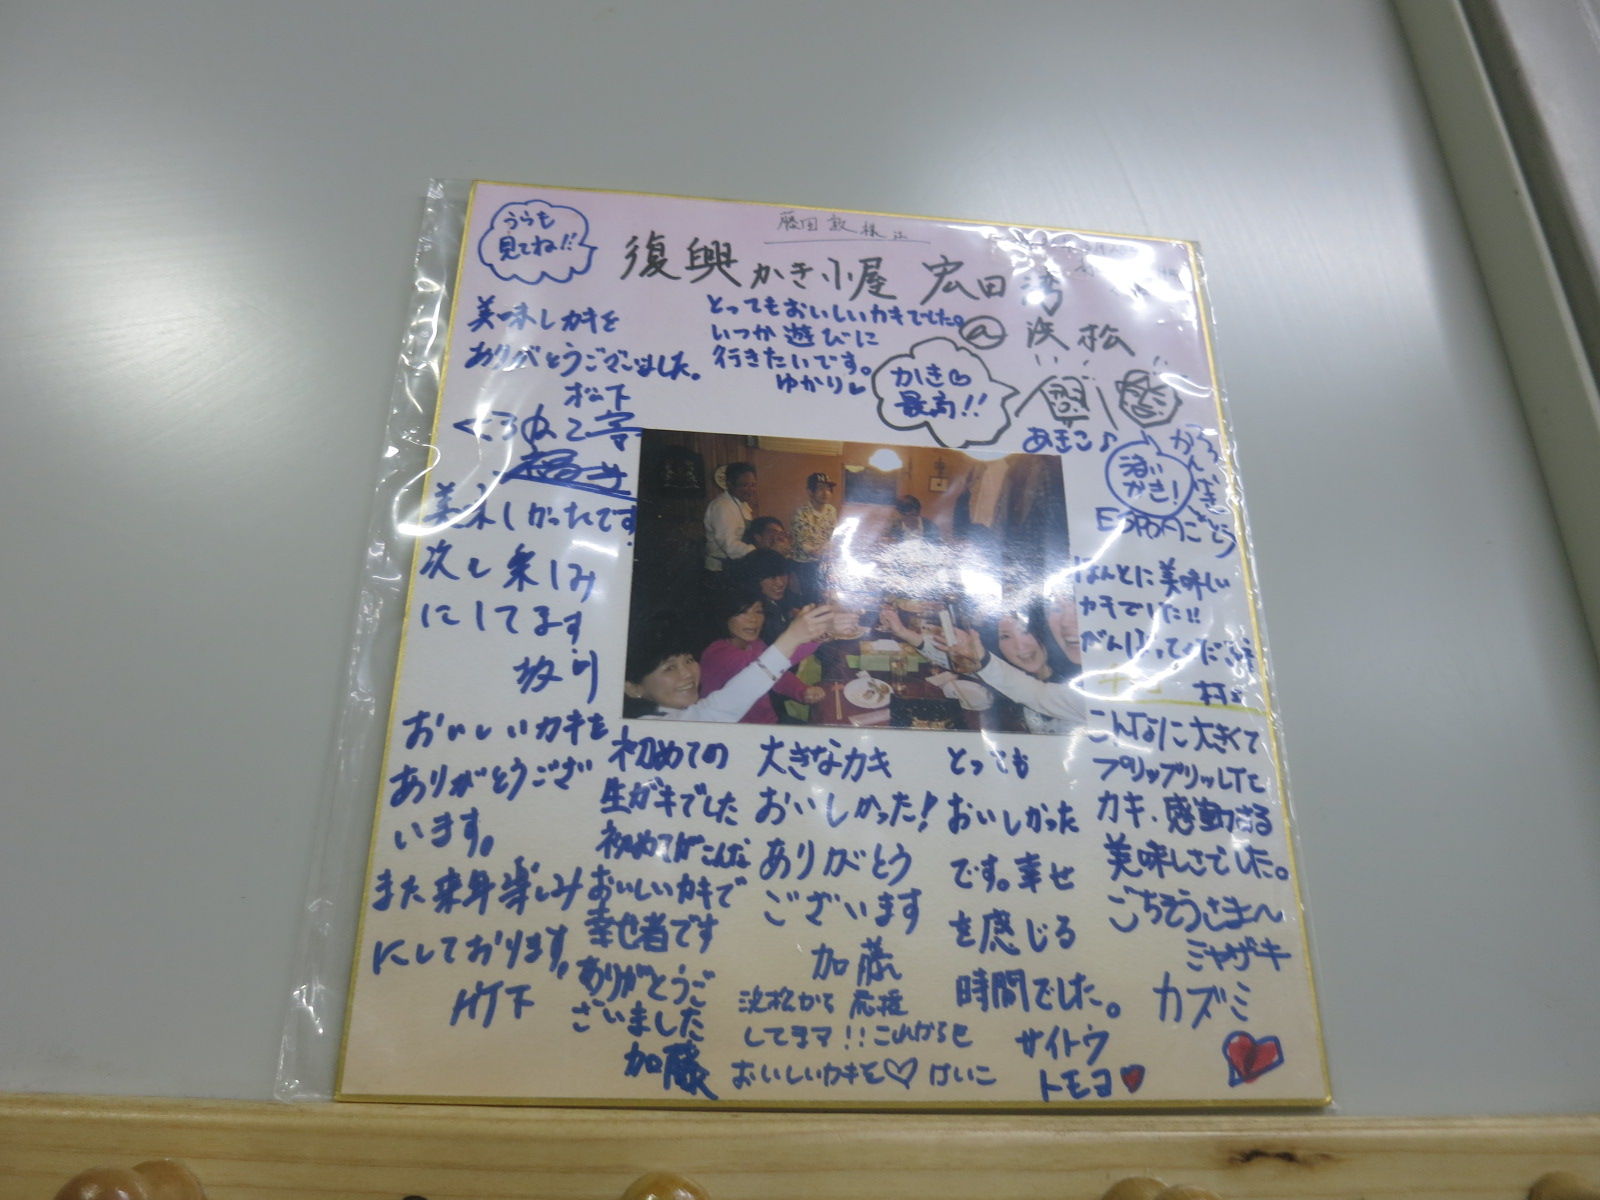 うらも
見てね!!
藤田 敦 様
復興 かき小屋 広田湾
@ 浜松
美味しカキを
ありがとうございました。
松下
とってもおいしいカキでした。
いつか遊びに
行きたいです。
ゆかり
かき♡
最高!!
あきこ♪
かき!
美味しかったです
次も楽しみ
にしてます
ほんとに美味しい
カキでした!!
がんばってください
おいしいカキを
ありがとうござ
います。
また来年楽しみ
にしております。
竹下
初めての
生ガキでした
初めてがこんな
おいしいカキで
幸せ者です
ありがとうご
ざいました
加藤
大きなカキ
おいしかった!
ありがとう
ございます
加藤
浜松から応援
してます!!これからも
おいしいカキを♡けいこ
とっても
おいしかった
です。幸せ
を感じる
時間でした。
サイトウ
トモコ♥
こんなに大きくて
プリップリッした
カキ、感動する
美味しさでした。
ごちそうさま〜
ミヤザキ
カズミ